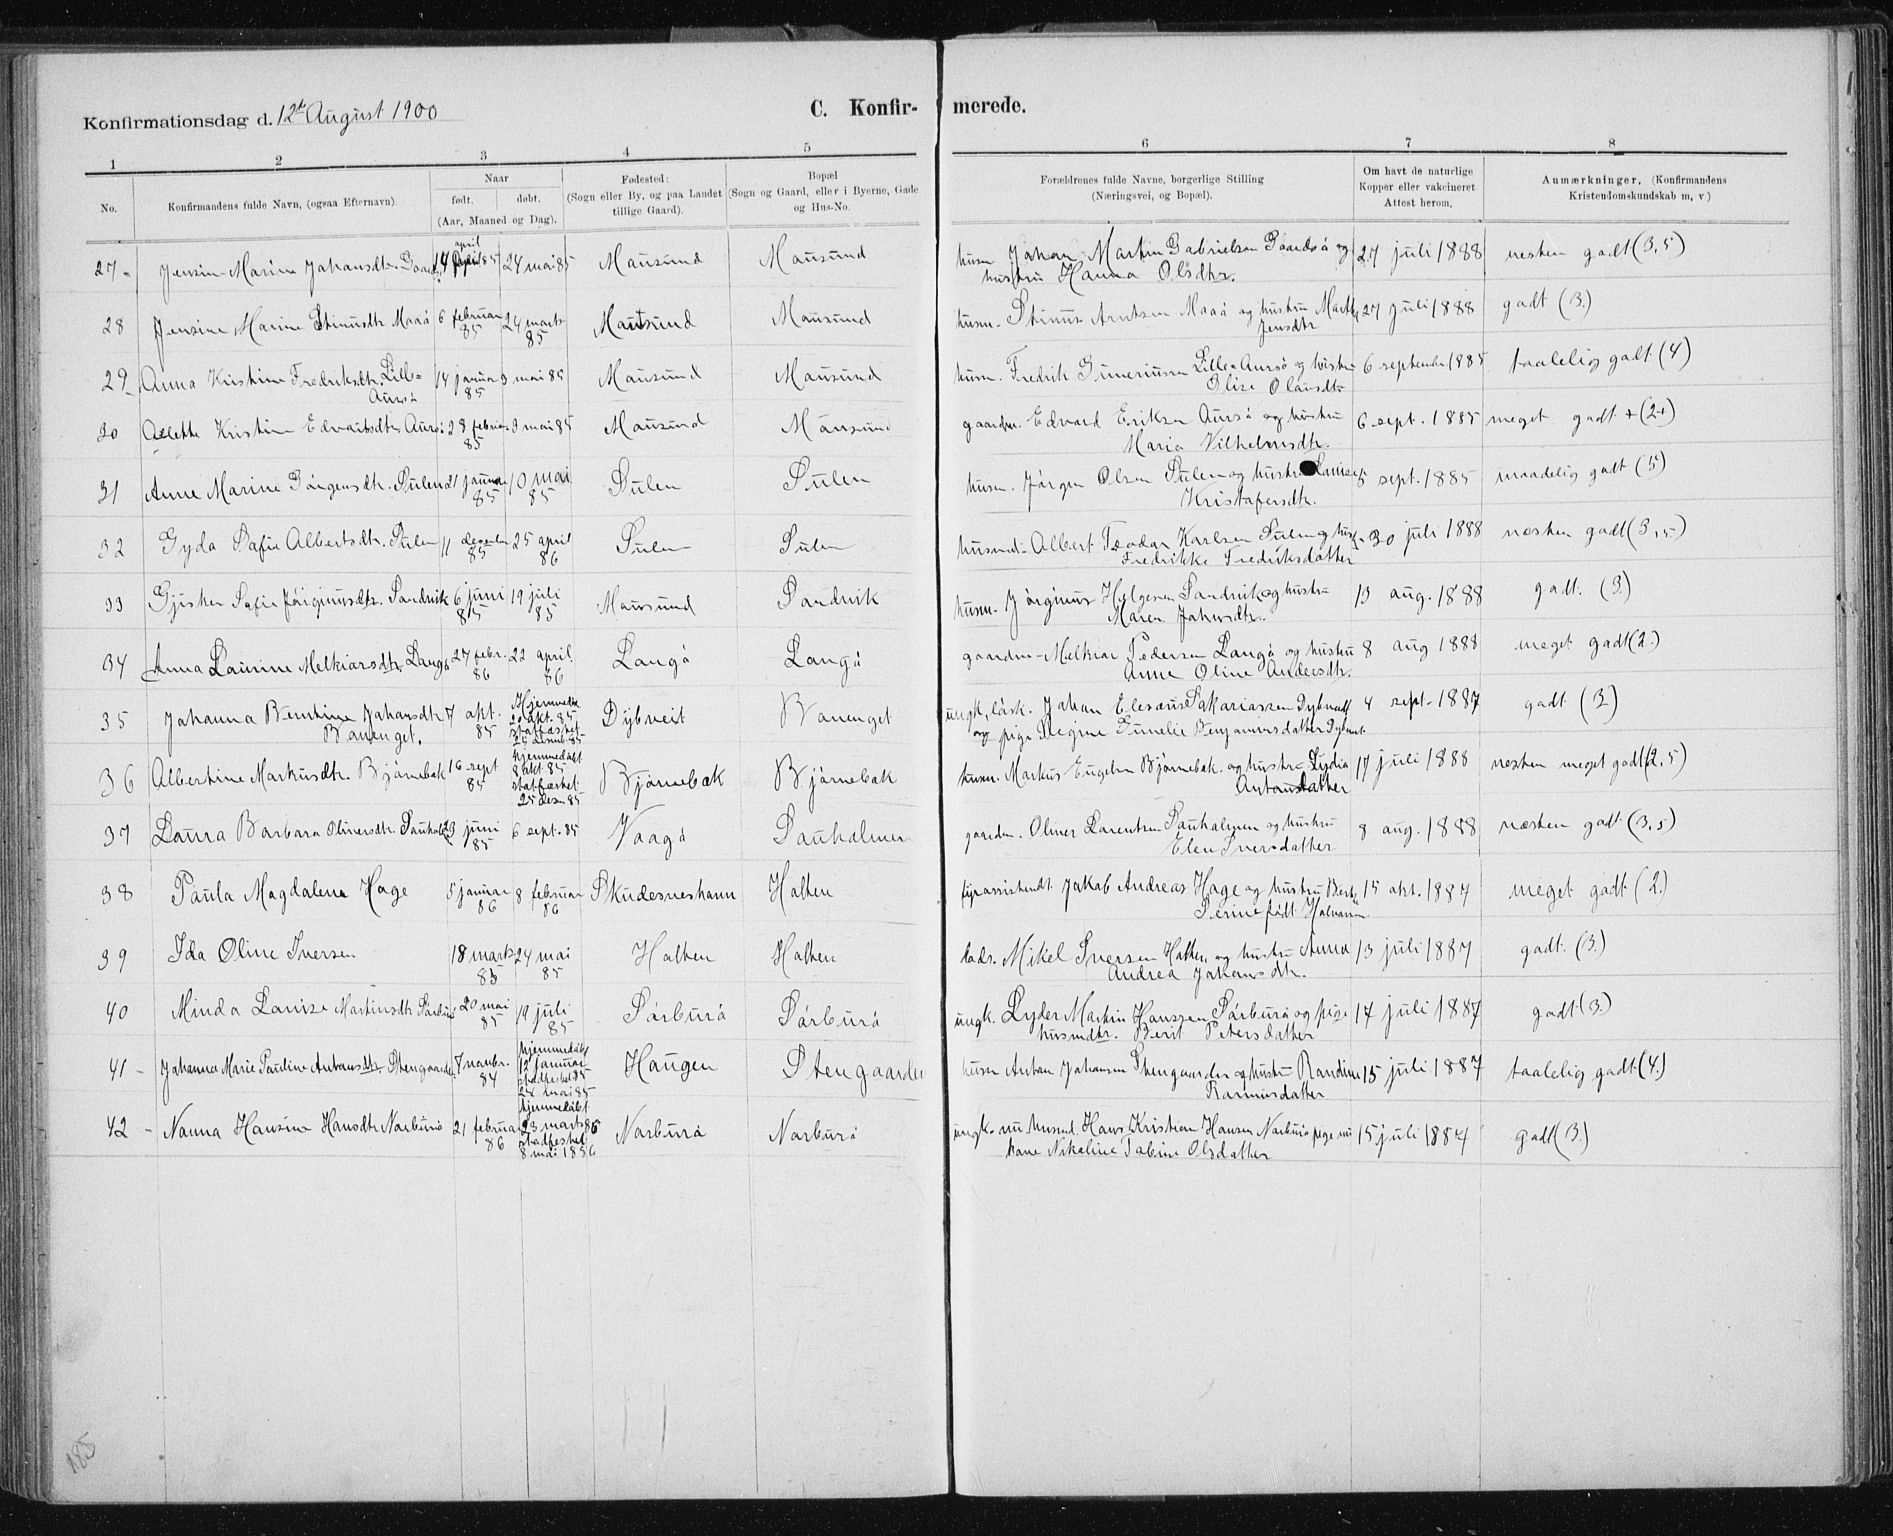 Konfirmationsdag d. 12te August 1900
C. Konfir- merede.
1 2 3 4 5 6 7 8
No.
Konfirmandens fulde Navn, (ogsaa Efternavn).
Naar
født. døbt.
(Aar, Maaned og Dag).
Fødested:
(Sogn eller By, og paa Landet
tillige Gaard).
Bopæl
(Sogn og Gaard, eller i Byerne, Gade
og Hus-No.
Forældrenes fulde Navne, borgerlige Stilling
(Næringsvei, og Bopæl).
Om havt de naturlige
Kopper eller vakcineret
Attest herom.
Anmærkninger, (Konfirmandens
Kristendomskundskab m, v.)
27 Jensine Marine Johansdtr. 14 april 85 24 mai 85 Mausund Mausund husm. Johan Martin Gabrielsen og 27 juli 1888 nesten godt (3,5)
hustru Hanna Olsdtr.
28 Jensine Marine Stinusdtr. Maaö 6 februar 24 marts Mausund Mausund husm. Stinus Arntsen Maaö og hustru 27 juli 1888 godt (3.)
85 85 Jensdtr
29 Anna Kristine Fredriksdtr. Lille- 14 januar 3 mai 85 Mausund Mausund husm. Fredrik Lille-Aursö og hustru 6 september 1885 taalelig godt (4)
Aursö 85 Olausdtr
30 Kristine Edvartsdtr. Aursö 28 februar 3 mai 85 Mausund Mausund gaardm. Edvard Eriksen Aursö og hustru 6 sept. 1885 meget godt + (2+)
85 Maria Vilhelmsdtr.
31 Anne Marine Jörgensdtr. Sulen 21 januar 10 mai Sulen Sulen husm. Jörgen Olsen Sulen og hustru Lovise sept. 1885 maadelig godt (5)
85 85 Kristofersdtr.
32 Gyda Sofie Albertsdtr. Sulen 11 desember 25 april Sulen Sulen husmd. Albert Teodor Karlsen Sulen og hustru 30 juli 1888 næsten godt (3,5)
85 86 Fredrikke Fredriksdatter
33 Sofie Jörginusdtr. Sandvik 6 juni 19 juli Mausund Sandvik husm. Jörginus Helgesen Sandvik og hustru 13 aug. 1888 godt. (3.)
85 85 Maren Johnsdtr.
34 Anna Laurine Melkiorsdtr. Langö 27 febr. 22 april Langö Langö gaardm. Melkior Pedersen Langö og hustru 8 aug 1888 meget godt (2.)
86 86 Anne Oline Andersdtr.
35 Johanna Bernhine Johansdtr 7 okt. Hjemmedøbt Dybveit Bonenget ungk. Johan Eleseus Sakariassen 4 sept. 1887 godt (3)
Bonenget. 85 okt. 85 og pige Regine Benjaminsdatter
stadfæstet
85
36 Albertine Markusdtr. Björnebak 16 sept hjemmedøbt Björnebak Björnebak husm. Markus Björnebak. og hustru Lydia 17 juli 1888 nesten meget godt (2,5)
85 8 okt. 85 Antonsdatter
stadfæstet
25 desm 85
37 Laura Barbara Olinersdtr. 23 juni 6 sept. 85 Vaagö Sauholmen gaardm. Oliner Lorentsen Sauholmen og hustru 8 aug. 1888 næsten godt (3,5)
85 Elen Iversdatter
38 Paula Magdalena Hage 5 januar 8 februar Skudesneshavn Halten fyrassistendt Jakob Andreas Hage og hustru 15 okt. 1887 meget godt (2.)
86 86 Serine født
39 Ida Oline Iversen 18 marts 24 mai Halten Halten lods. Mikel Iversen Halten og hustru Anna 13 juli 1887 godt. (3.)
85 85 Andrea Johansdtr.
40 Minda Lovise Martinsdtr. Sörburö 20 mai 19 juli Sörburö Sörburö ungk. Lyder Martin Hanssen Sörburö og pige 17 juli 1887 godt (3.)
85 85 husmdtr. Berit Petersdatter
41 Johanna Marie Pauline Antonsdtr. Stengaarden 7 novbr. hjemmedøbt Haugen Stengaarden husm Anton Johansen Stengaarden og hustru Randine 15 juli 1887 taalelig godt (4.)
84 12 januar Rasmusdatter
stadfestet 85
mai 85
42 Nanna Hansine Hansdtr Norburö 21 februar hjemmedøbt Norburö Norburö ungk. nu husmd. Hans Kristian Hansen Norburö pige nu 15 juli 1887 godt (3.)
86 23 marts 86 kone Nikoline Olsdatter
stadfestet
8 mai 1886
185